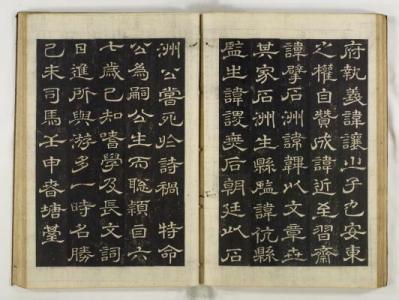 府執義諱讓之子也安東
之權自贊成諱近至習齋
諱擘石洲諱韠以文章世
其家石洲生縣監諱伉縣
監生諱無后朝廷以石
洲公嘗死於詩禍 特命
公為嗣公生而聰穎自六
七歲已知嗜學及長文詞
日進所與游多一時名勝
己未司馬壬申春塘臺